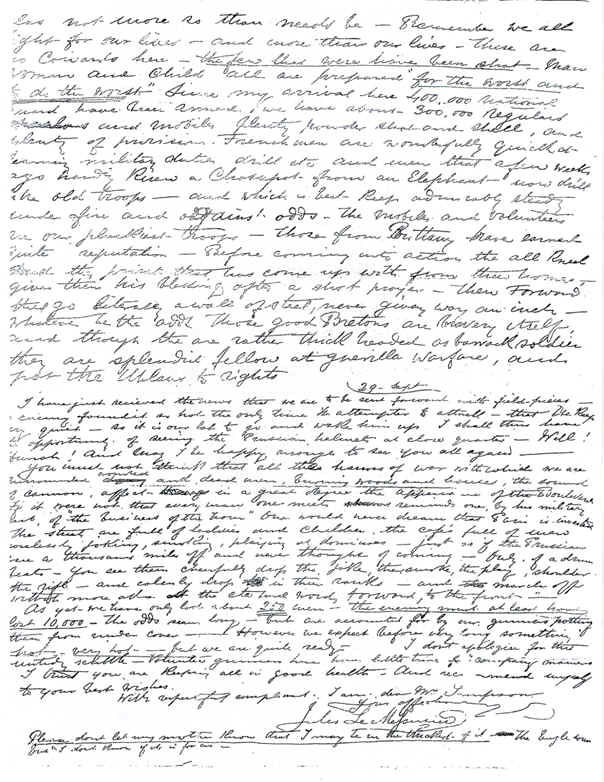 not more so than needs be – Remember we all
fight for our lives – and more than our lives – these are
no Cowards here – the few that were have been shot – Man
Woman and Child all are prepared "for the worst and
to do the worst" Since my arrival here 400,000 National
Guard have been armed, we have about 300,000 Regulars
and Mobiles. Plenty powder shot and shell, and
plenty of provision. Frenchmen are wonderfully quick at
learning military duties drill etc and men that a few weeks
ago hardly Knew a Chassepot from an Elephant – now drill
like old troops – and which is best Keep admirably steady
under fire and odds – the Mobiles and Volunteers
are our pluckiest troops – those from Brittany have earned
quite reputation – Before coming into action the all Kneel
the priest that has come up with from their homes
gives them his blessing after a short prayer – then Forward
they go literally a wall of steel, never giving way an inch –
Whatever be the odds Those good Bretons are bravery itself,
and though the are rather thick headed as barrack soldier
they are splendid fellow at guerilla warfare, and
put the Uhlans to rights
29 – Sept
I have just received the news that we are to be sent forward with field-pieces –
enemy found it so hot the only time He attempted to attack – that He Keep
very quiet – so it is our lot to go and wake him up I shall then have
opportunity of seeing the Prussian helmets at close quarters – Well!
And may I be happy enough to see you all again –
You must not think that all the horrors of war with which we are
surrounded and dead men, burning woods and houses, the sound
of cannon, affect in a great degree the appearance of the Boulevards
if it were not that every man one meets reminds one, by his military
of the business of the hour One would never dream that Paris is invested
the street are full of ladies and Children the cafés full of men
carelessly joking, smoking, playing at dominos – just as if the Prussians
were a thousand mile off and never thought of coming – Only if a drum
beats – You see them carefully drop the joke, the smoke, the play, shoulder
the rifle – and calmly drop in their ranks – and march off
without more ado at the eternal word, Forward, to the front –
As yet we have only lost about 250 men – the enemy must at least have
lost 10,000 – the odds seem long – but are accounted for by our gunners potting
them from under cover – However we expect before very long something
hot, very hot – but we are quite ready – I don't apologize for this
untidy scribble – Volunteer gunners have been better time to
I trust you are Keeping all in good health – And recommend myself
to your best wishes.
With respectful compliments. I am, dear Mr Simpson
Yours affectionately
Jules
Please dont let my mother Know that I may be in the thickest of it – the Eagle
I dont Know if do is for us –